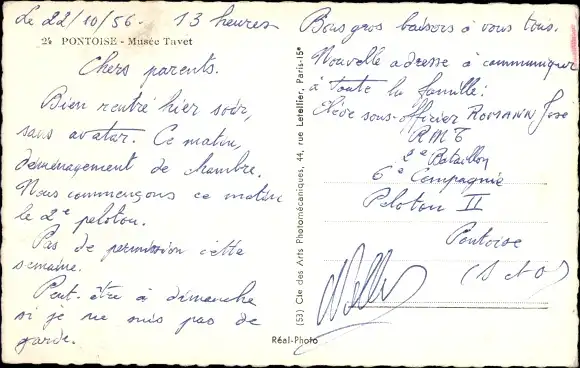 Le 22/10/56. 13 heures
24 PONTOISE - Musée Tavet
Chers parents.
Bien rentré hier soir,
sans avatar. Ce matin,
déménagement de chambre.
Nous commençons ce matin
le 2e peloton.
Pas de permission cette
semaine.
Peut-être à dimanche
si je ne suis pas de
garde.
(53) Cie des Arts Photomécaniques, 44, rue Letellier, Paris-15e
Réal-Photo
Bons gros baisers à vous tous.
Nouvelle adresse à communiquer
à toute la famille:
Elève sous-officier ROMANN José
RMT
2e Bataillon
6e Compagnie
Peloton II
Pontoise
(S et O)